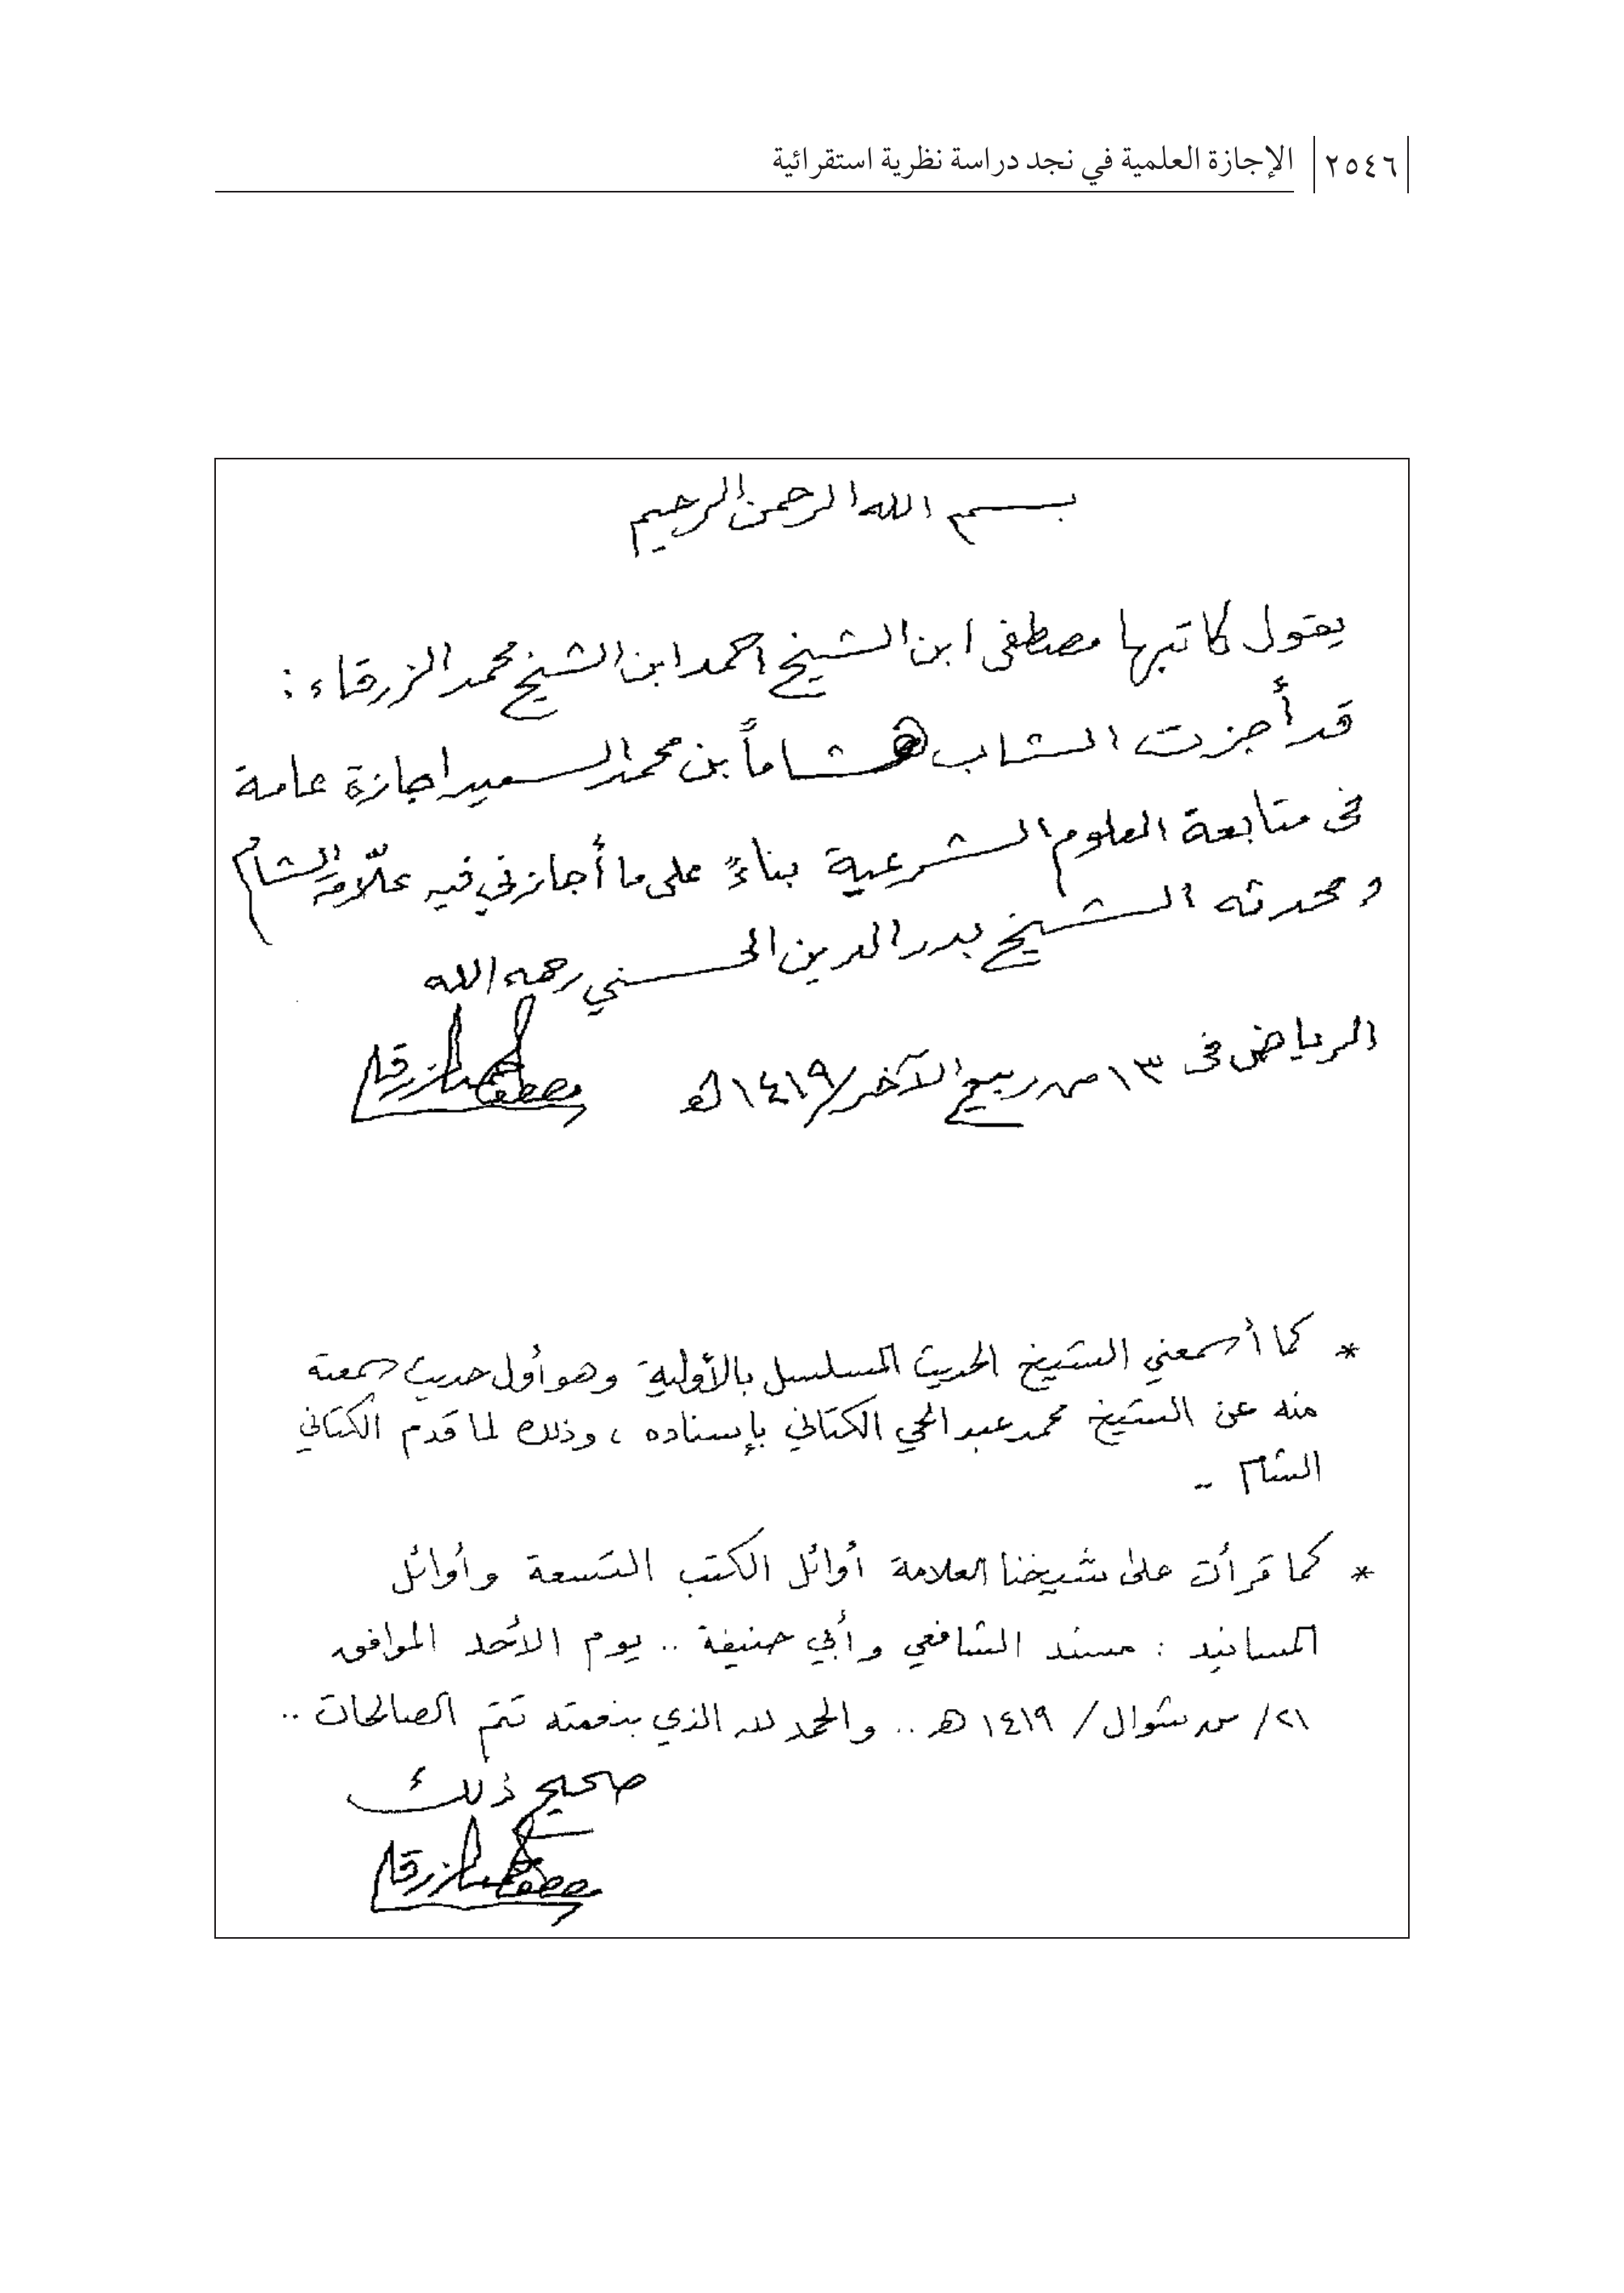 ٢٥٤٦ الإجازة العلمية في نجد دراسة نظرية استقرائية
بسم الله الرحمن الرحيم
يقول كاتبها مصطفى ابن الشيخ احمد ابن الشيخ محمد الزرقاء :
قد أجزت الشاب هشاماً بن محمد السعيد اجازة عامة
فى متابعة العلوم الشرعية بناءً على ما أجازني فيه علّامة الشام
ومحدثه الشيخ بدر الدين الحسني رحمه الله
الرياض فى ١٣ من ربيع الآخر/١٤١٩ هـ
مصطفى احمد الزرقا
* كما أسمعني الشيخ الحديث المسلسل بالأولية وهو أول حديث سمعته
منه عن الشيخ محمد عبد الحي الكتاني بإسناده ، وذلك لما قدم الكتاني
الشام ..
* كما قرأت على شيخنا العلامة أوائل الكتب التسعة وأوائل
المسانيد : مسند الشافعي وأبي حنيفة .. يوم الأحد الموافق
٢١/ من شوال / ١٤١٩ هـ .. والحمد لله الذي بنعمته تتم الصالحات ..
صحيح ذلك
مصطفى احمد الزرقا